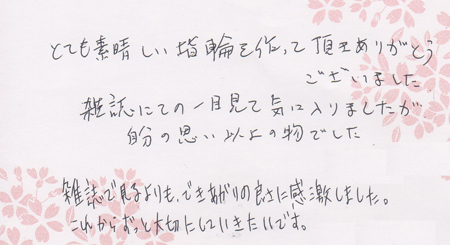 とても素晴しい指輪を作って頂きありがとう
ございました
雑誌にての一目見て気に入りましたが
自分の思い以上の物でした
雑誌で見るよりも、できあがりの良さに感激しました。
これからずっと大切にしていきたいです。